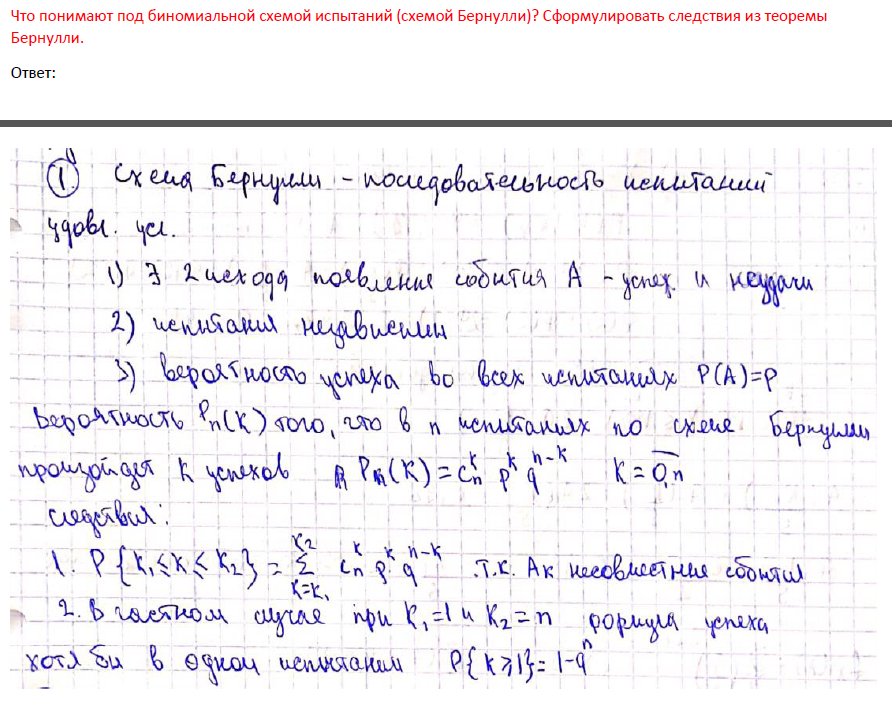 Что понимают под биномиальной схемой испытаний (схемой Бернулли)? Сформулировать следствия из теоремы
Бернулли.
Ответ:
1. Схема Бернулли – последовательность испытаний
удовл. усл.
1) ∃ 2 исхода появление события A – успех. и неудачи
2) испытания независимы
3) вероятность успеха во всех испытаниях P(A)=p
Вероятность Pn(K) того, что в n испытаниях по схеме Бернулли
произойдет K успехов Pn(K) = C_n^k p^k q^{n-k} K = \overline{0,n}
следствия:
1. P{K₁≤K≤K₂} = \sum_{K=K₁}^{K₂} C_n^k p^k q^{n-k} .т.к. Aк несовместные сбонтия
2. В частном случае при K₁=1 и K₂=n формула успеха
хотя бы в одном испытании P{K≥1}=1-qⁿ